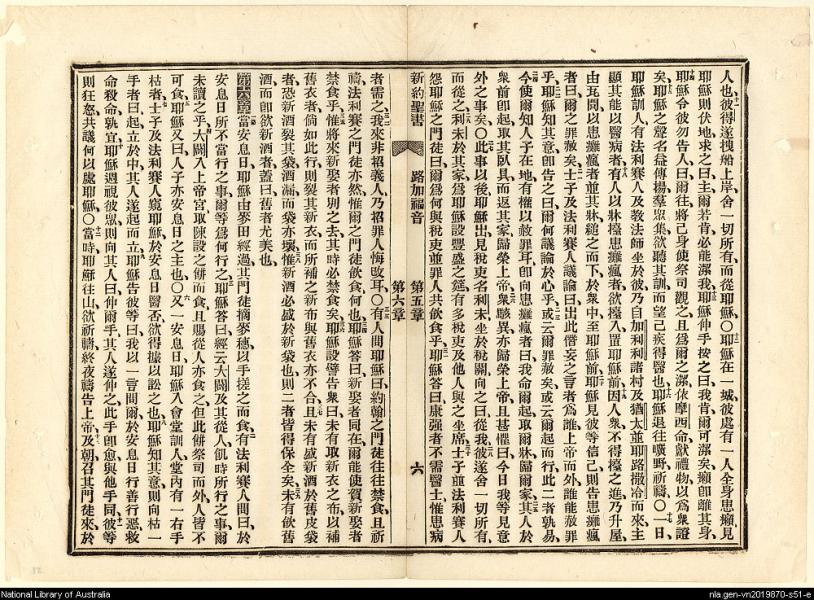 人也彼得遂拽船上岸舍一切所有而從耶穌〇耶穌在一城彼處有一人全身患癩見
耶穌則伏地求之曰主爾若肯必能潔我耶穌伸手按之曰我肯爾可潔矣癩卽離其身
耶穌令彼勿告人曰爾往將己身使祭司觀之且爲爾之潔依摩西命獻禮物以爲衆證
矣耶穌之聲名益傳揚羣衆集欲聽其訓而望己疾得醫也耶穌退往曠野祈禱〇一日
耶穌訓人有法利賽人及敎法師坐於彼乃自加利利諸村及猶太並耶路撒冷而來主
顯其能以醫病者有人以牀擡患癱瘋者欲擡入置耶穌前因人衆不得擡之進乃升屋
由瓦間以患癱瘋者並其牀縋之而下於衆中至耶穌前耶穌見彼等信己則告患癱瘋
者曰爾之罪赦矣士子及法利賽人議論曰出此僭妄之言者爲誰上帝而外誰能赦罪
乎耶穌知其意卽告之曰爾何議論於心乎或云爾罪赦矣或云爾起而行此二者孰易
今使爾知人子在地有權以赦罪耳卽向患癱瘋者曰我命爾起取爾牀歸爾家其人於
衆前卽起取其臥具而返其家歸榮上帝衆駭異亦歸榮上帝且甚懼曰今日我等見意
外之事矣〇此事以後耶穌出見稅吏名利未坐於稅關向之曰從我彼遂舍一切所有
而從之利未於其家爲耶穌設豐盛之筵有多稅吏及他人與之坐席士子並法利賽人
怨耶穌之門徒曰爾爲何與稅吏並罪人共飲食乎耶穌答曰康强者不需醫士惟患病
新約聖書 路加福音 第五章 第六章 六
者需之我來非招義人乃招罪人悔改耳〇有人問耶穌曰約翰之門徒往往禁食且祈
禱法利賽之門徒亦然惟爾之門徒飲食何也耶穌答曰新娶者同在爾能使賀新娶者
禁食乎惟將來新娶者別之去其時必禁食矣耶穌設譬告衆曰未有取新衣之布以補
舊衣者倘如此行則裂其新衣而所補之新布與舊衣亦不合且未有盛新酒於舊皮袋
者恐新酒裂其袋酒漏而袋亦壞惟新酒必盛於新袋也則二者皆得保全矣未有飲舊
酒而卽欲新酒者蓋曰舊者尤美也
第六章 當安息日耶穌由麥田經過其門徒摘麥穗以手搓之而食有法利賽人問曰於
安息日所不當行之事爾等爲何行之耶穌答曰經云大闢及其從人飢時所行之事爾
未讀之乎大闢入上帝宮取陳設之餅而食且賜從人亦食之但此餅祭司而外人皆不
可食耶穌又曰人子亦安息日之主也〇又一安息日耶穌入會堂訓人堂內有一右手
枯者士子及法利賽人窺耶穌於安息日醫否欲得據以訟之也耶穌知其意則向枯一
手者曰起立於中其人遂起而立耶穌告彼等曰我以一言問爾於安息日行善行惡救
命殺命孰宜耶穌週視彼衆則向其人曰伸爾手其人遂伸之此手卽愈與他手同彼等
則狂怒共議何以處耶穌〇當時耶穌往山欲祈禱終夜禱告上帝及朝召其門徒來於
National Library of Australia
nla.gen-vn2019870-s51-e